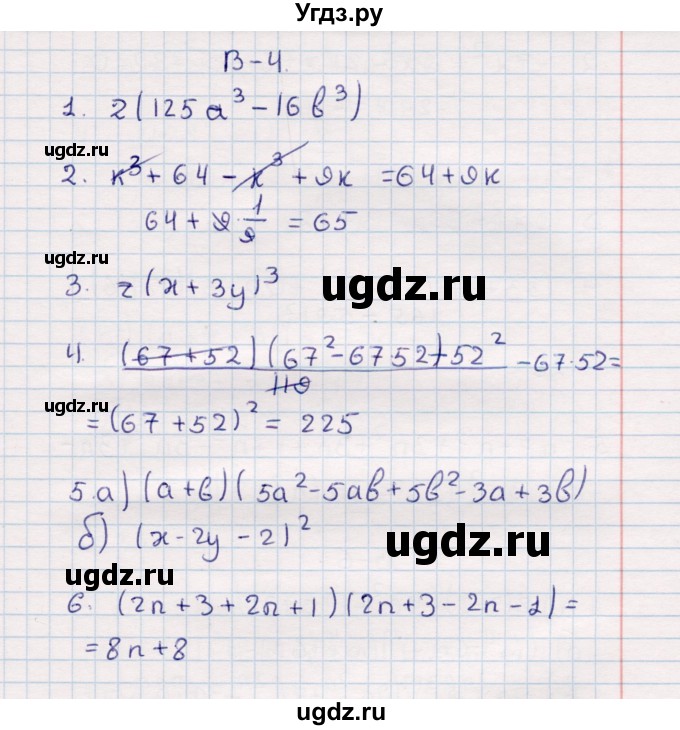 Угдз.ру
В-4.
1. 2(125a³-16в³)
ugdz.ru
2. к³+64-к³+9к =64+9к
64+9·1/9=65
ugdz.ru
3. z(x+3y)³
ugdz.ru
4. (67+52)(67²-67 52+52²)/119 -67·52=
ugdz.ru
=(67+52)²=225
5.a) (a+в)(5a²-5aв+5в²-3a+3в)
б) (x-2y-2)²
ugdz.ru
ugdz.ru
6. (2n+3+2n+1)(2n+3-2n-1)=
=8n+8
ugdz.ru
ugdz.ru